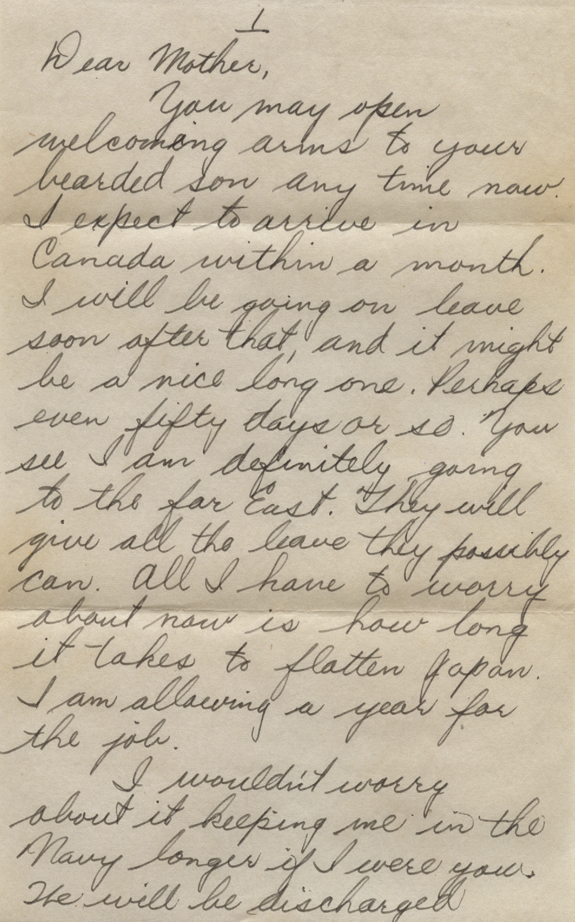 1
Dear Mother,
You may open
welcoming arms to your
bearded son any time now.
I expect to arrive in
Canada within a month.
I will be going on leave
soon after that, and it might
be a nice long one. Perhaps
even fifty days or so. You
see I am definitely going
to the far East. They will
give all the leave they possibly
can. All I have to worry
about now is how long
it takes to flatten Japan.
I am allowing a year for
the job.
I wouldn't worry
about it keeping me in the
Navy longer if I were you.
We will be discharged